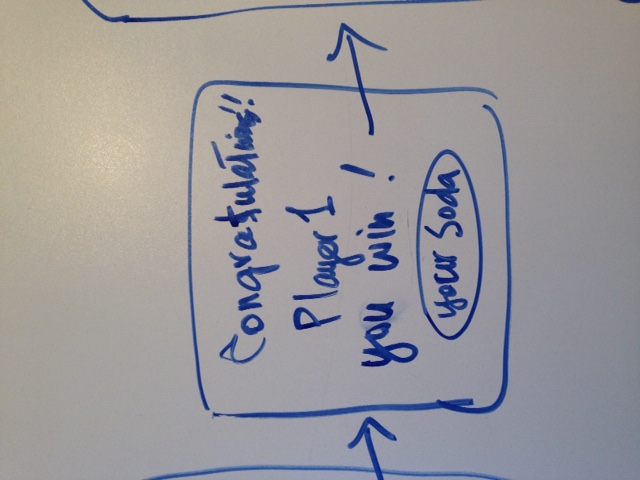 Congratulations!!
Player 1
you win !
your Soda